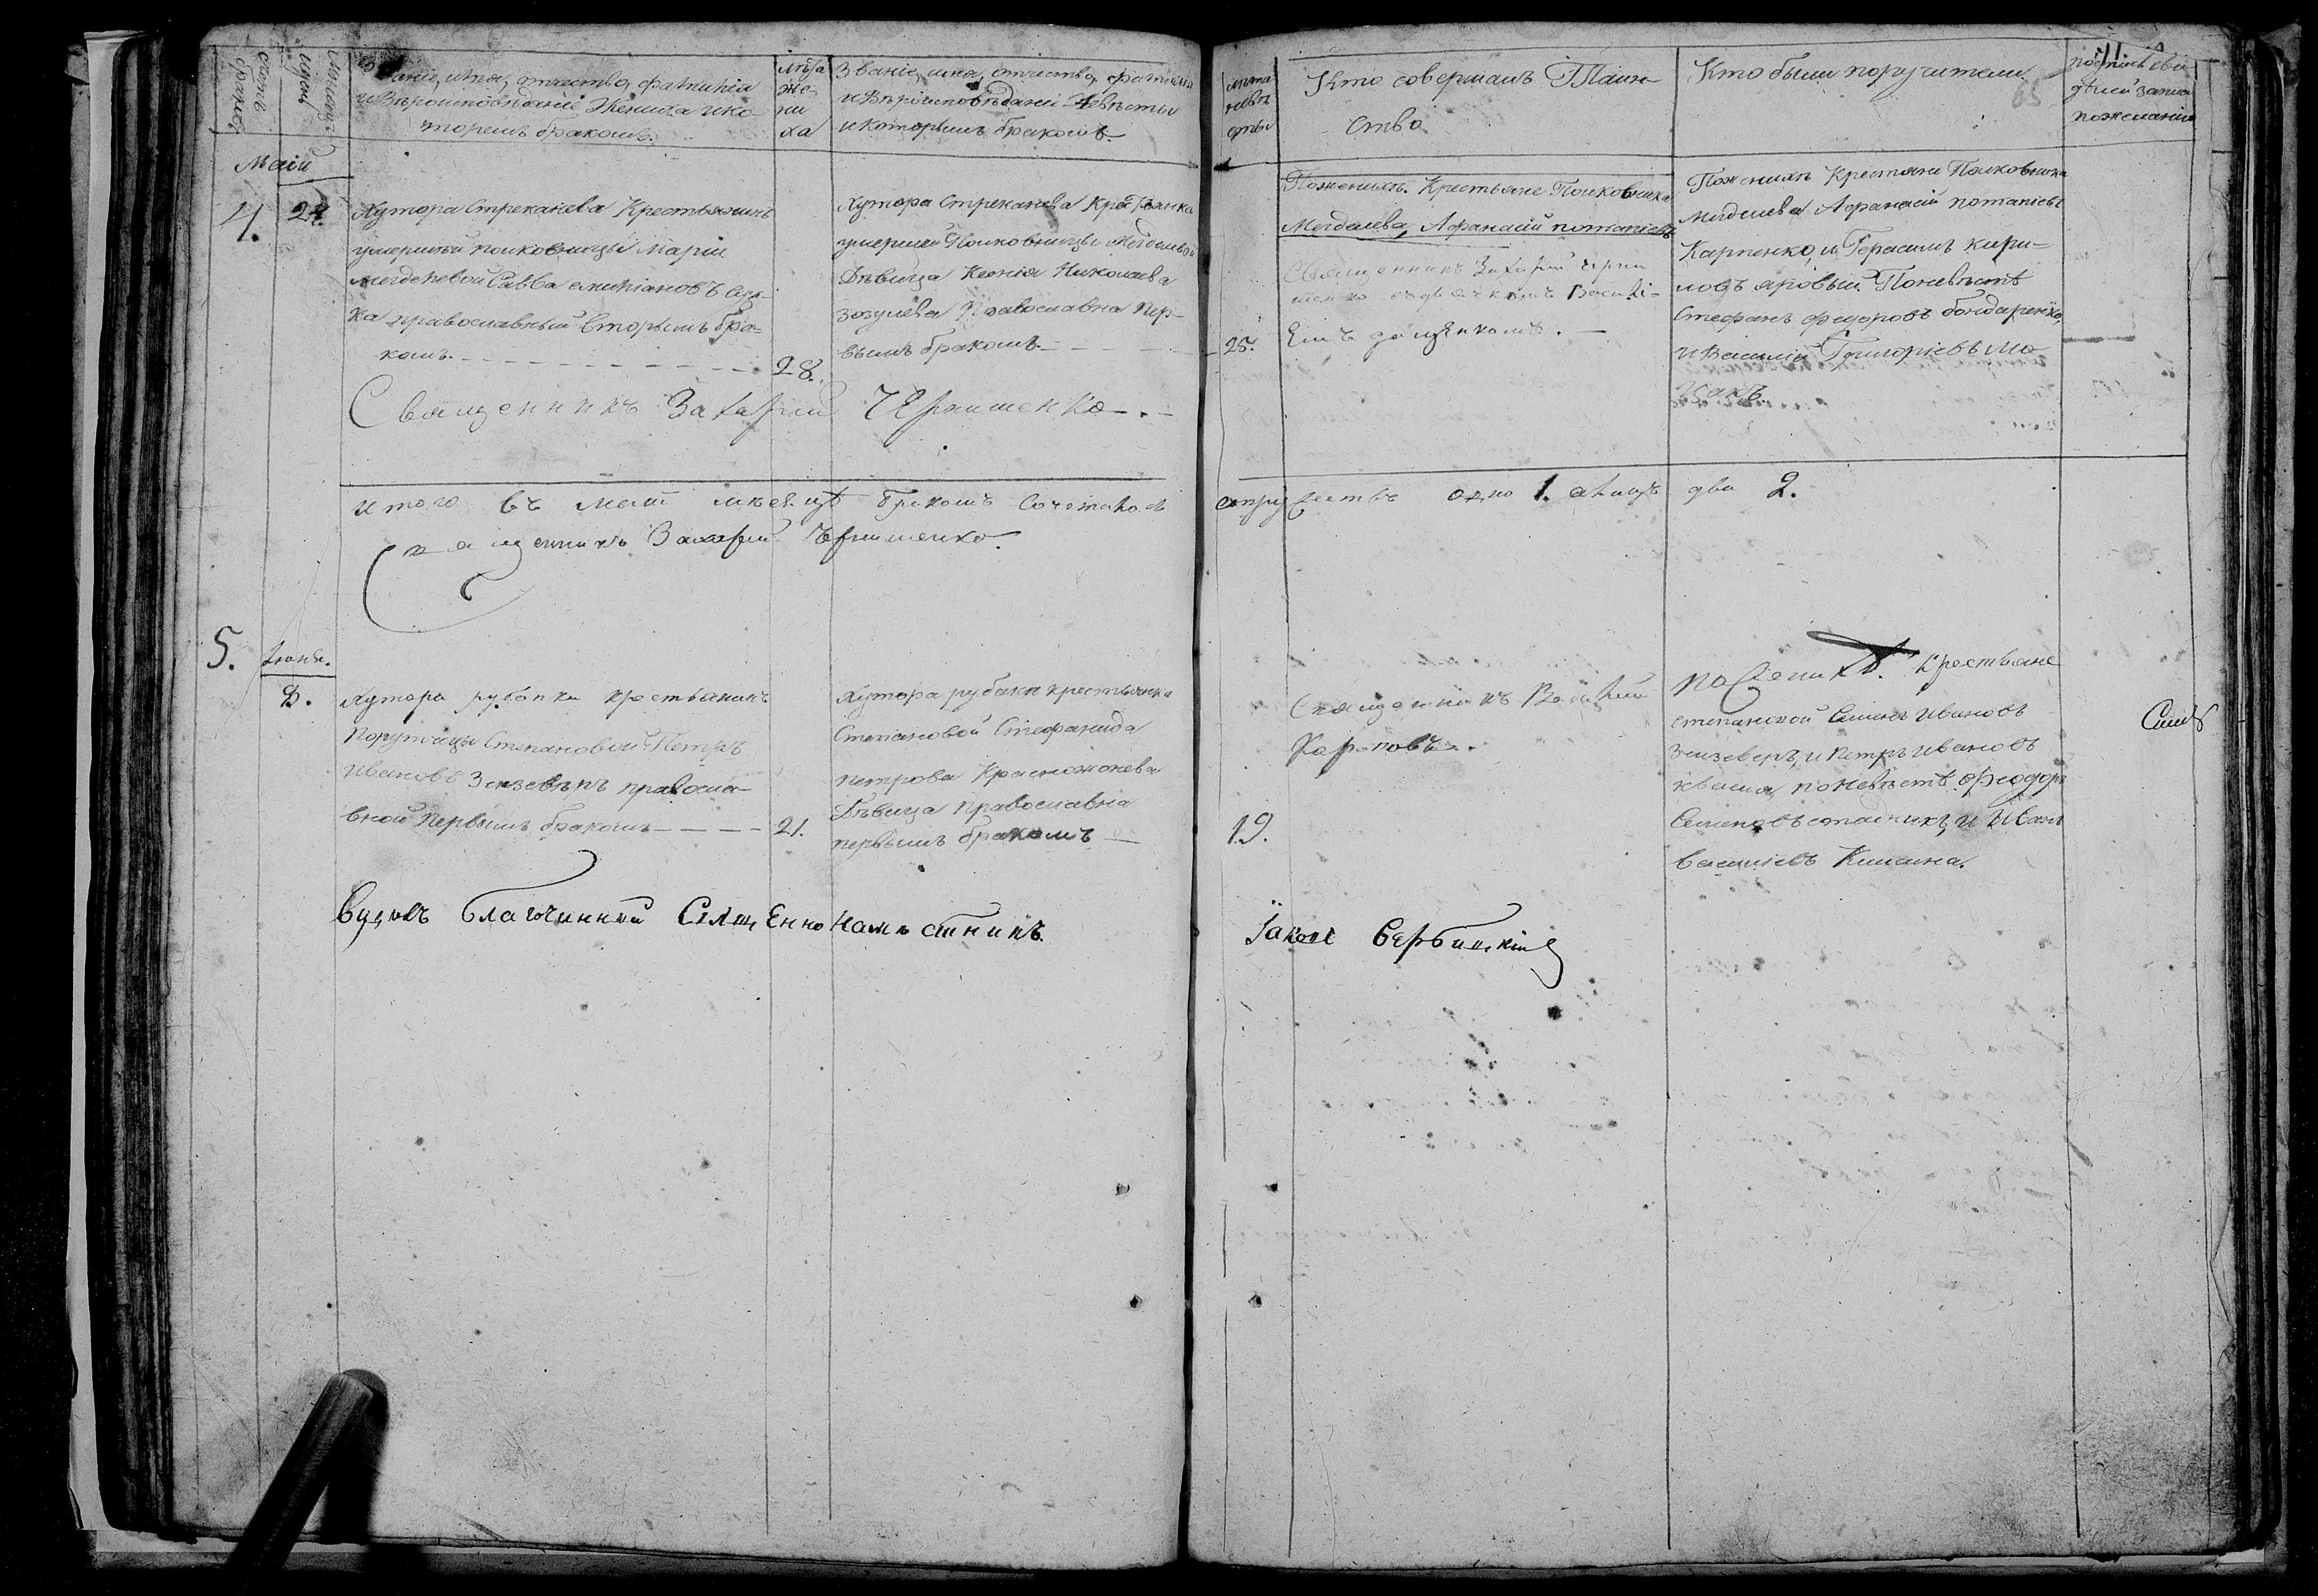 счетъ браковъ
Мѣсяцъ и день
Званіе, имя, отчество, фамилія
и Вѣроисповѣданіе Жениха и ко-
торымъ бракомъ.
лѣта
же-
ни
ха
Званіе, имя, отчество, фамилія
и Вѣроисповѣданіе Невѣсты
и которымъ бракомъ.
лѣта
невѣ
сты
Кто совершалъ Таин-
ство
Кто были поручители
65
подпись сви
дѣтелей запи
по желанію
Маій
4.
24.
Хутора Стреканева Крестьянинъ
умершей полковницы Маріи
Савва емиліановъ
ка православный Вторымъ бра-
комъ.
28.
Хутора Стреканева Крестьянка
умершей Полковницы
Дѣвица Ксенія Николаева
зозулева Православна пер-
вымъ бракомъ.
25.
По женихѣ Крестьяне Полковника
Афанасій потапіевъ
Священникъ Захарій Черни
шенко съ дьячкомъ Василі-
Емъ доценкомъ.
По женихѣ Крестьяне Полковника
Афанасій потапіевъ
Карпенко, и Герасимъ кири-
ловъ яровый. По невѣстѣ
Стефанъ федоровъ бондаренко,
и Василій Григоріевъ Мо
Священникъ Захарій Чернишенко.
итого въ маіи мѣсяцѣ бракомъ сочеталось супружествъ одно 1. а лицъ два 2.
Священникъ Захарій Чернишенко.
5.
Іюня.
8.
хутора рубанки крестьянинъ
Порутчицы Степановой Петръ
Ивановъ Зензевѣръ правосла-
вной Первымъ бракомъ
21.
Хутора рубанки крестьянка
Степановой Стефанида
петрова Красножонова
Дѣвица православна
первымъ бракомъ
19.
Священникъ Василій
Карповъ.
по Женихѣ. Крестьяне
степановой Семенъ Ивановъ
Зензеверъ, и Петръ Ивановъ
кваша, по невѣстѣ: Феодоръ
Семеновъ стадникъ, и Иванъ
василіевъ Кишина.
Видѣлъ благочинный Священно Намѣстникъ. Іаковъ Вербицкій